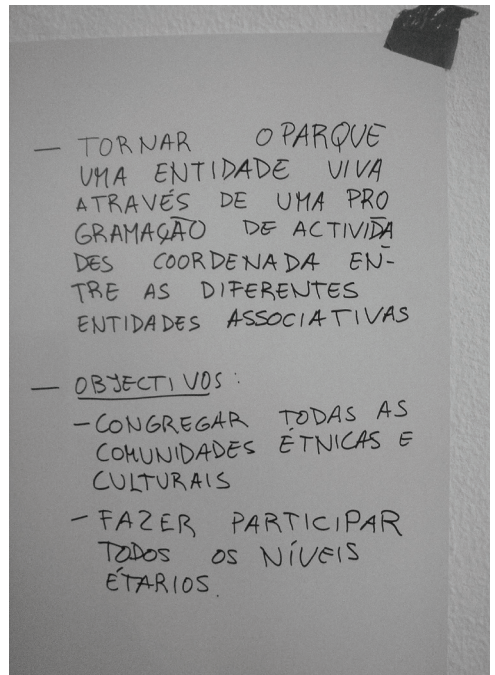 — TORNAR O PARQUE
UMA ENTIDADE VIVA
ATRAVÉS DE UMA PRO
GRAMAÇÃO DE ACTIVIDA
DES COORDENADA EN-
TRE AS DIFERENTES
ENTIDADES ASSOCIATIVAS
— OBJECTIVOS:
- CONGREGAR TODAS AS
COMUNIDADES ÉTNICAS E
CULTURAIS
- FAZER PARTICIPAR
TODOS OS NÍVEIS
ÉTARIOS.